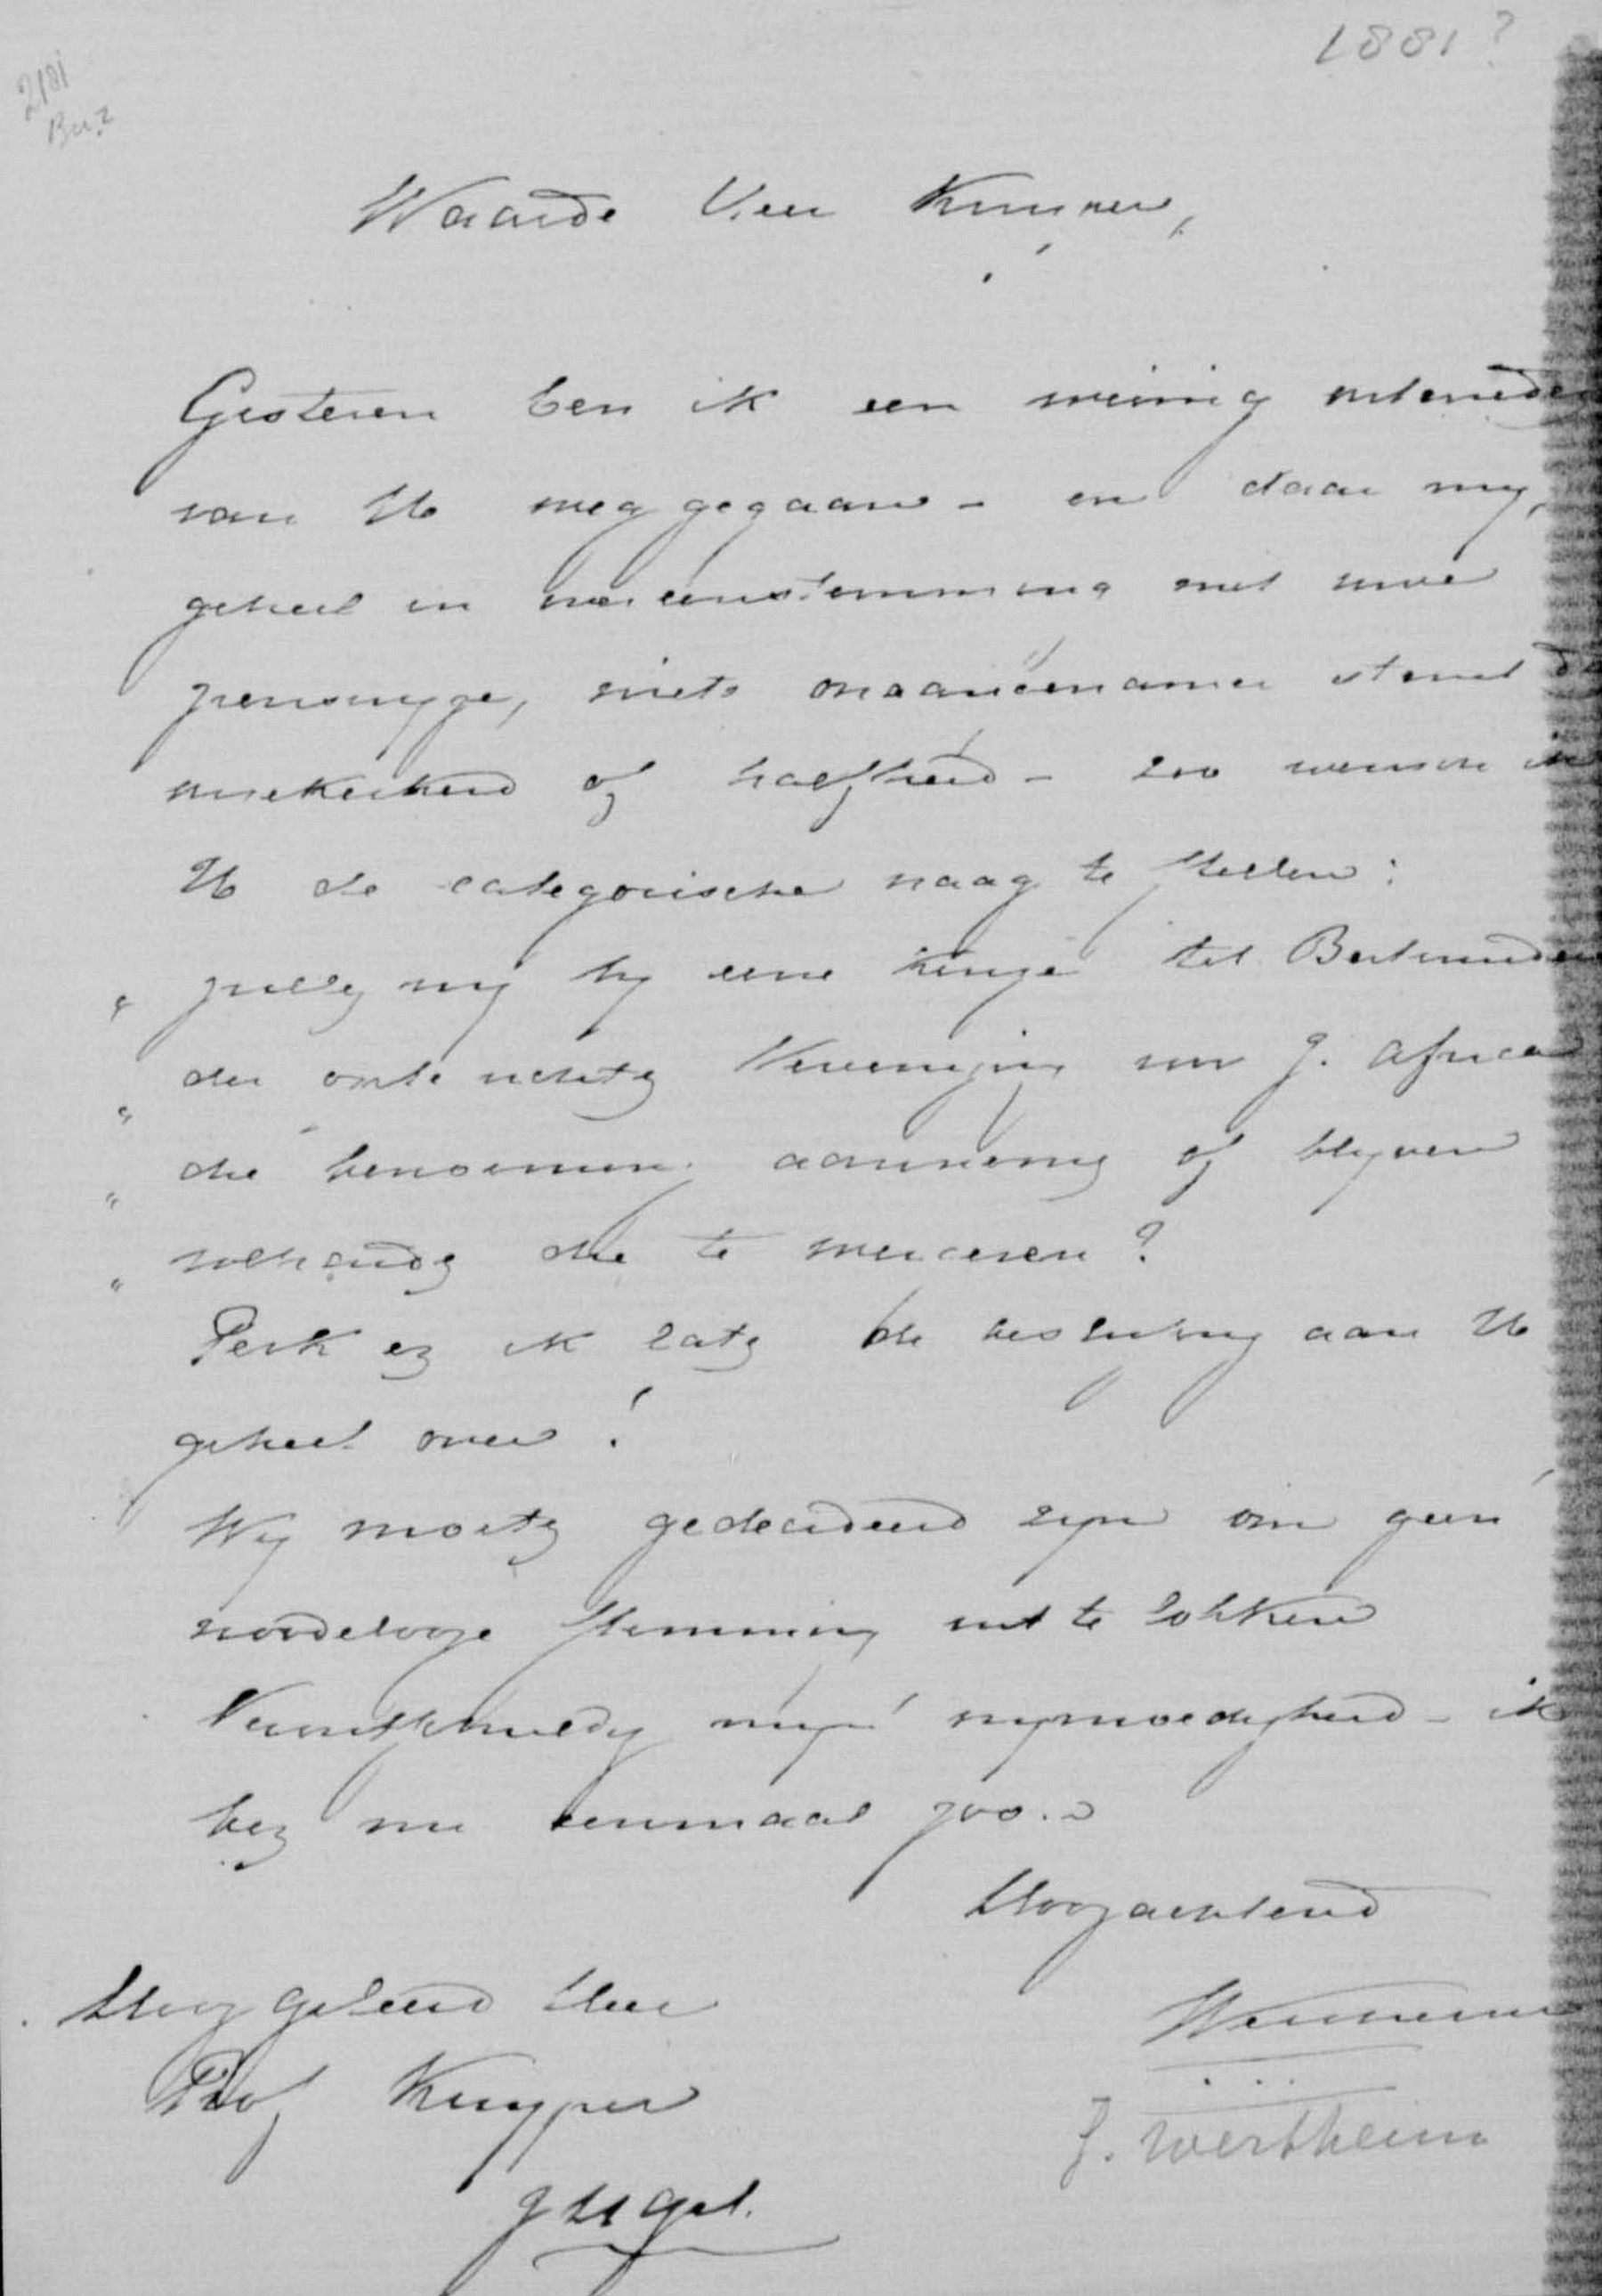 1881?
2181
Waarde Heer Kuyper,
Gisteren ben ik een weinig ontevreden
van U weggegaan - en daar my,
geheel in overeenstemming met uwe
zienswyze, niets onaangenamer stemt dan
onzekerheid of halfheid - zoo wensch ik
U de categorische vraag te stellen:
" zult gy by eene keuze tot Bestuurder
" der op te richten Vereeniging Z. Africa
" die benoeming aannemen of blyven
" die te weigeren?
Perk en ik laten de beslissing aan U
geheel over!
Wy moeten gedecideerd zyn om geen
noodelooze stemming uit te lokken
Verontschuldig myne vrymoedigheid - ik
ben nu eenmaal zoo.
Hoogachtend
Hooggeleerd Heer
Wertheim
Prof Kuyper
J. Wertheim